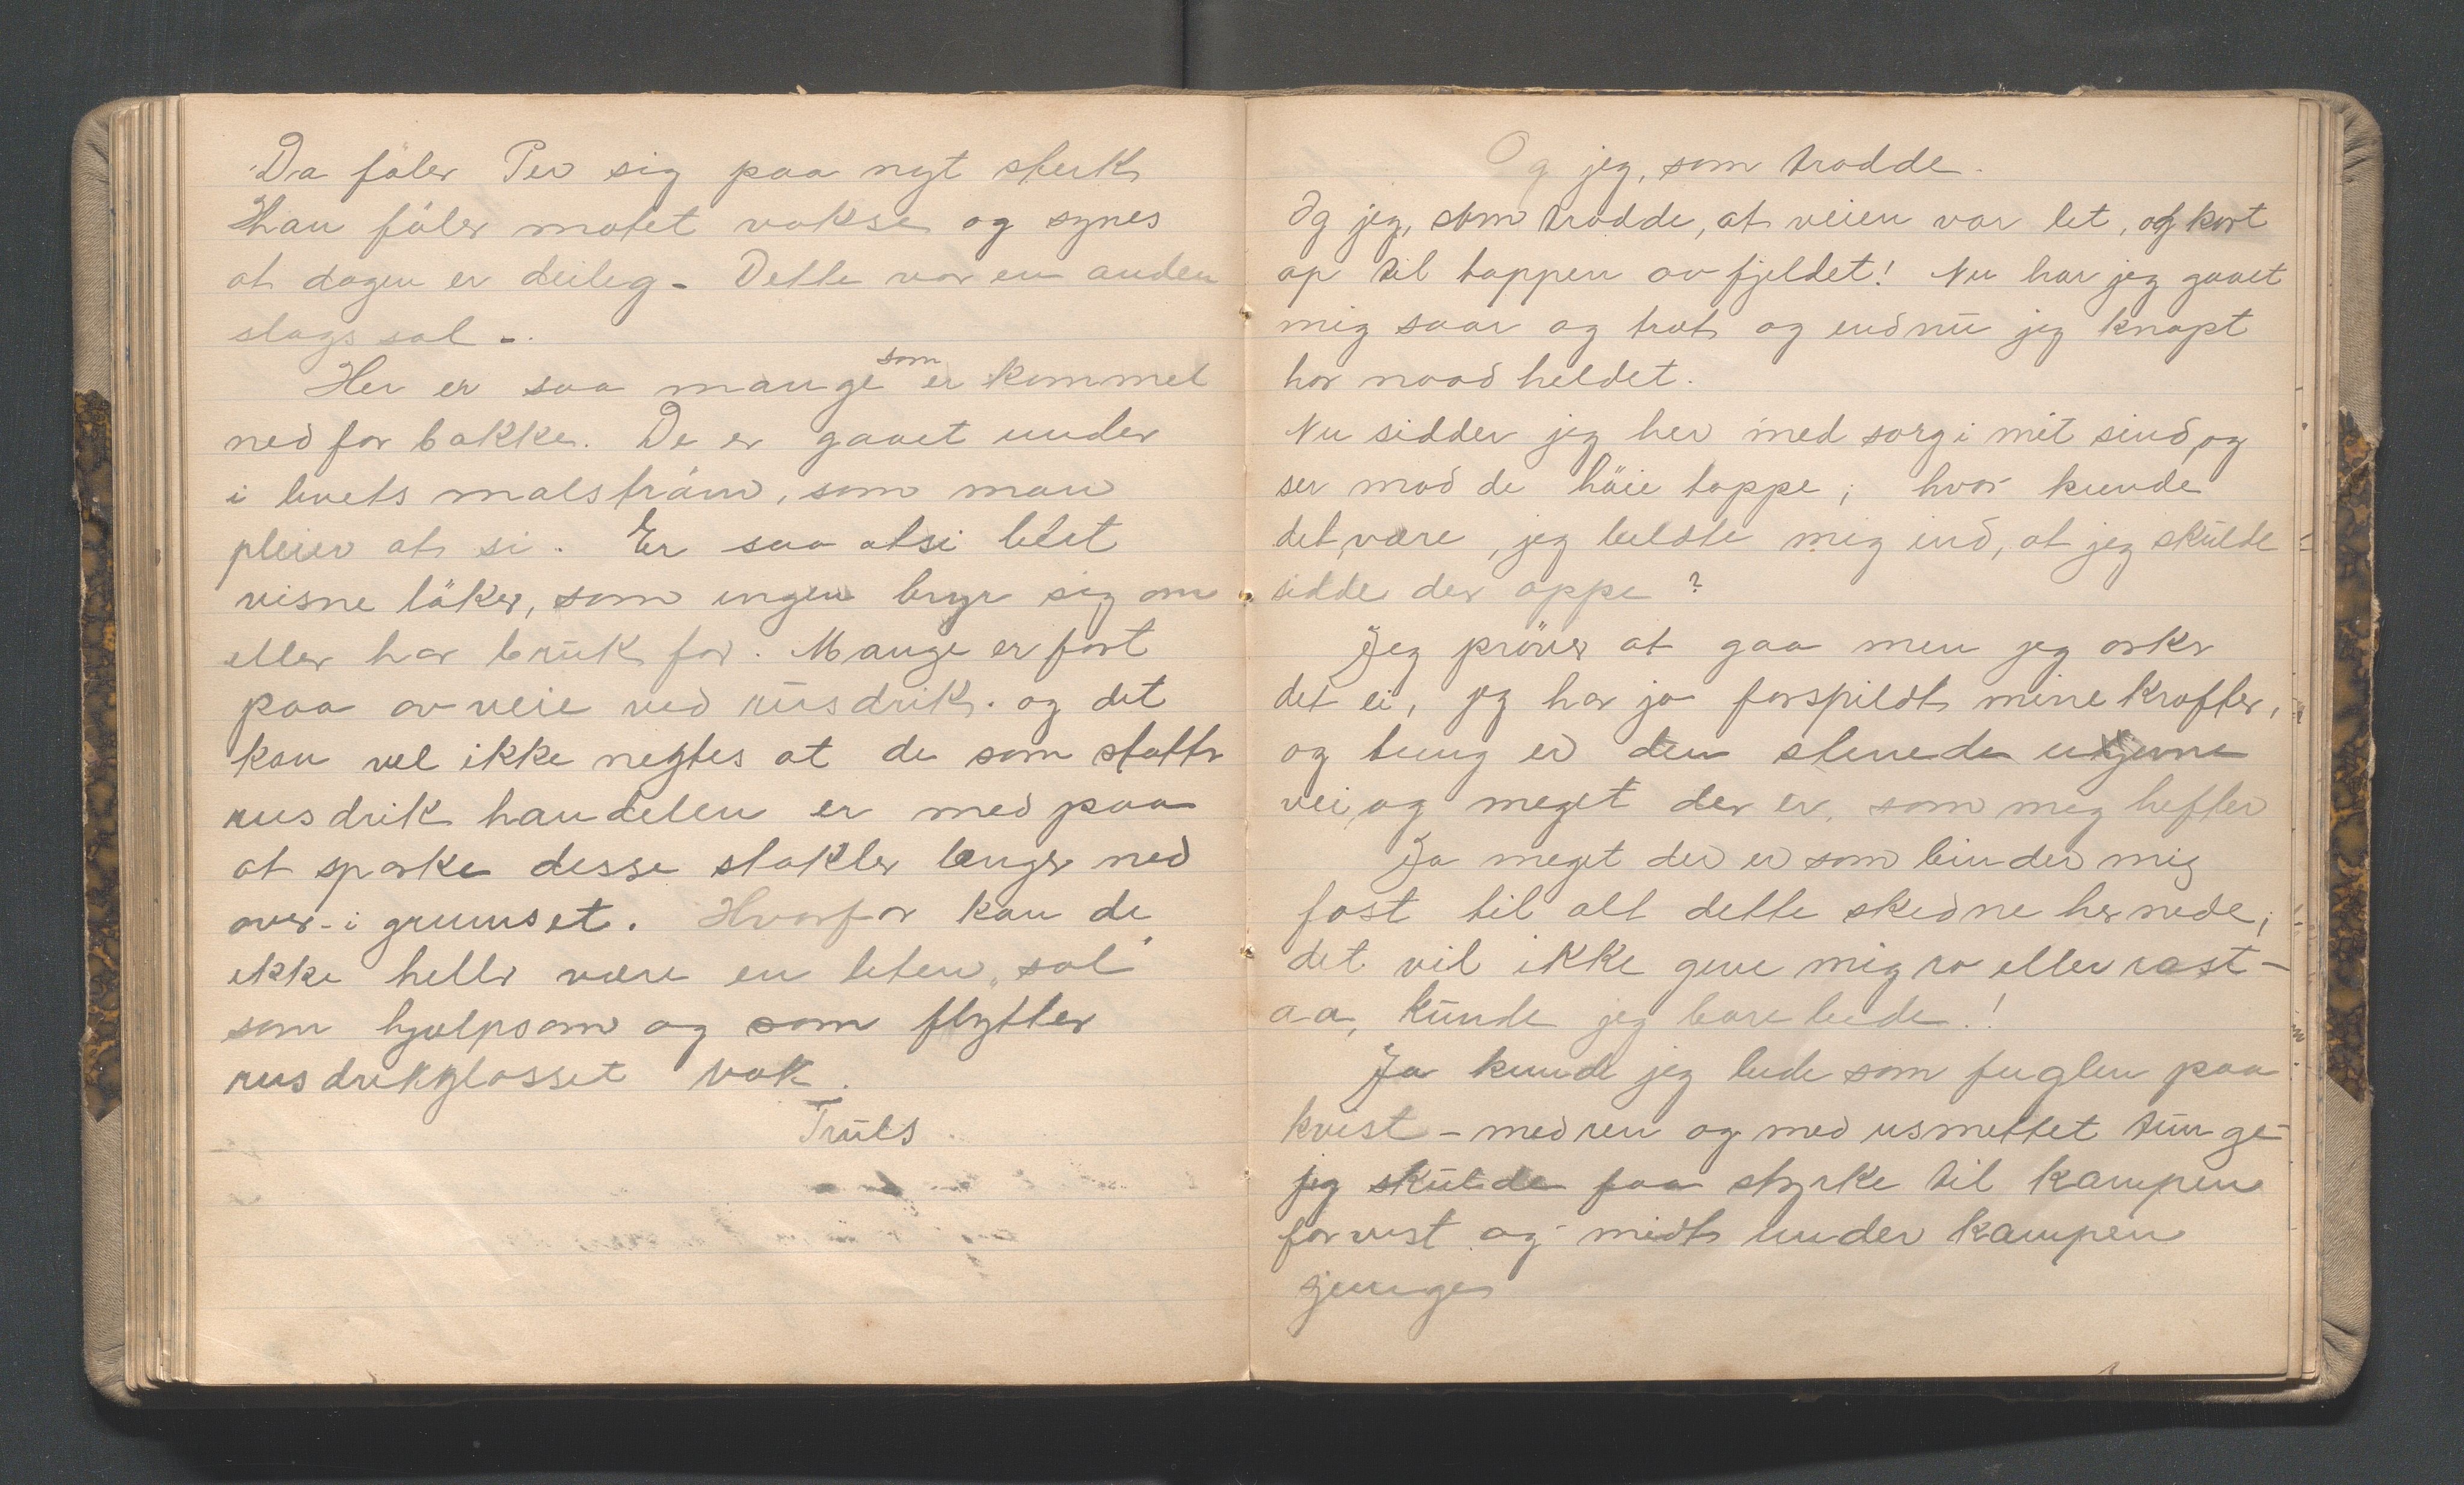 Da føler Per sig paa nyt sterk
Han føler motet vokse og synes
at dagen er deileg - Dette var en anden
slags sol -.
Her er saa mange som er kommet
ned for bakke. De er gaaet under
i livets malstrøm, som man
pleier at si. Er saa atsi blit
visne løker, som ingen bryr sig om
eller har bruk for. Mange er ført
paa avveie ved rusdrik. og det
kan vel ikke negtes at de som støtter
rusdrik handelen er med paa
at sparke desse stakler længer ned
over i grumset. Hvorfor kan de
ikke heller være en liten "sol"
som hjælpsom og som flytter
rusdrikglasset væk.
Truls
Og jeg, som trodde.
Og jeg, som trodde, at veien var let, og kort
op til toppen av fjeldet! Nu har jeg gaaet
mig saar og træt og endnu jeg knapt
har naad heldet.
Nu sidder jeg her med sorg i mit sind, og
ser mod de høie toppe; hvor kunde
det være, jeg bildte mig ind, at jeg skulde
sidde der oppe?
Jeg prøver at gaa men jeg orker
det ei, jeg har jo forspildt mine kræfter,
og tung er den stenede ujevne
vei, og meget der er, som mig hefter
Ja meget der er som binder mig
fast til alt dette skidne her nede;
det vil ikke give mig ro eller rast -
aa, kunde jeg bare bede!
Ja kunde jeg bede som fuglen paa
kvist - med ren og med usmittet tunge -
jeg skulde faa styrke til kampen
for vist og midt under kampen
sjunge